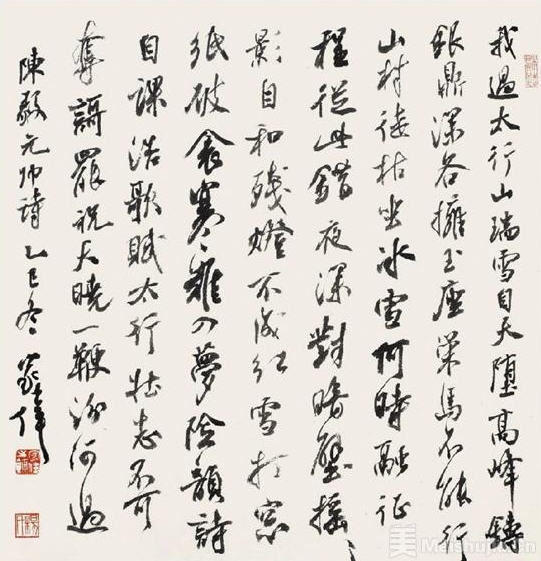 我過太行山瑞雪自天墮高峰鑄
銀鼎深谷擁玉座策馬不能行
山村徒枯坐冰雪何時融征
程從此錯夜深對暗壁搖搖
影自和殘燈不成紅雪打窗
紙破衾寒難入夢險韻詩
自課浩歌賦太行壯志不可
奪謌罷祝天曉一鞭汾河過
陳毅元帥詩 乙巳冬
美 Meishujia.cn